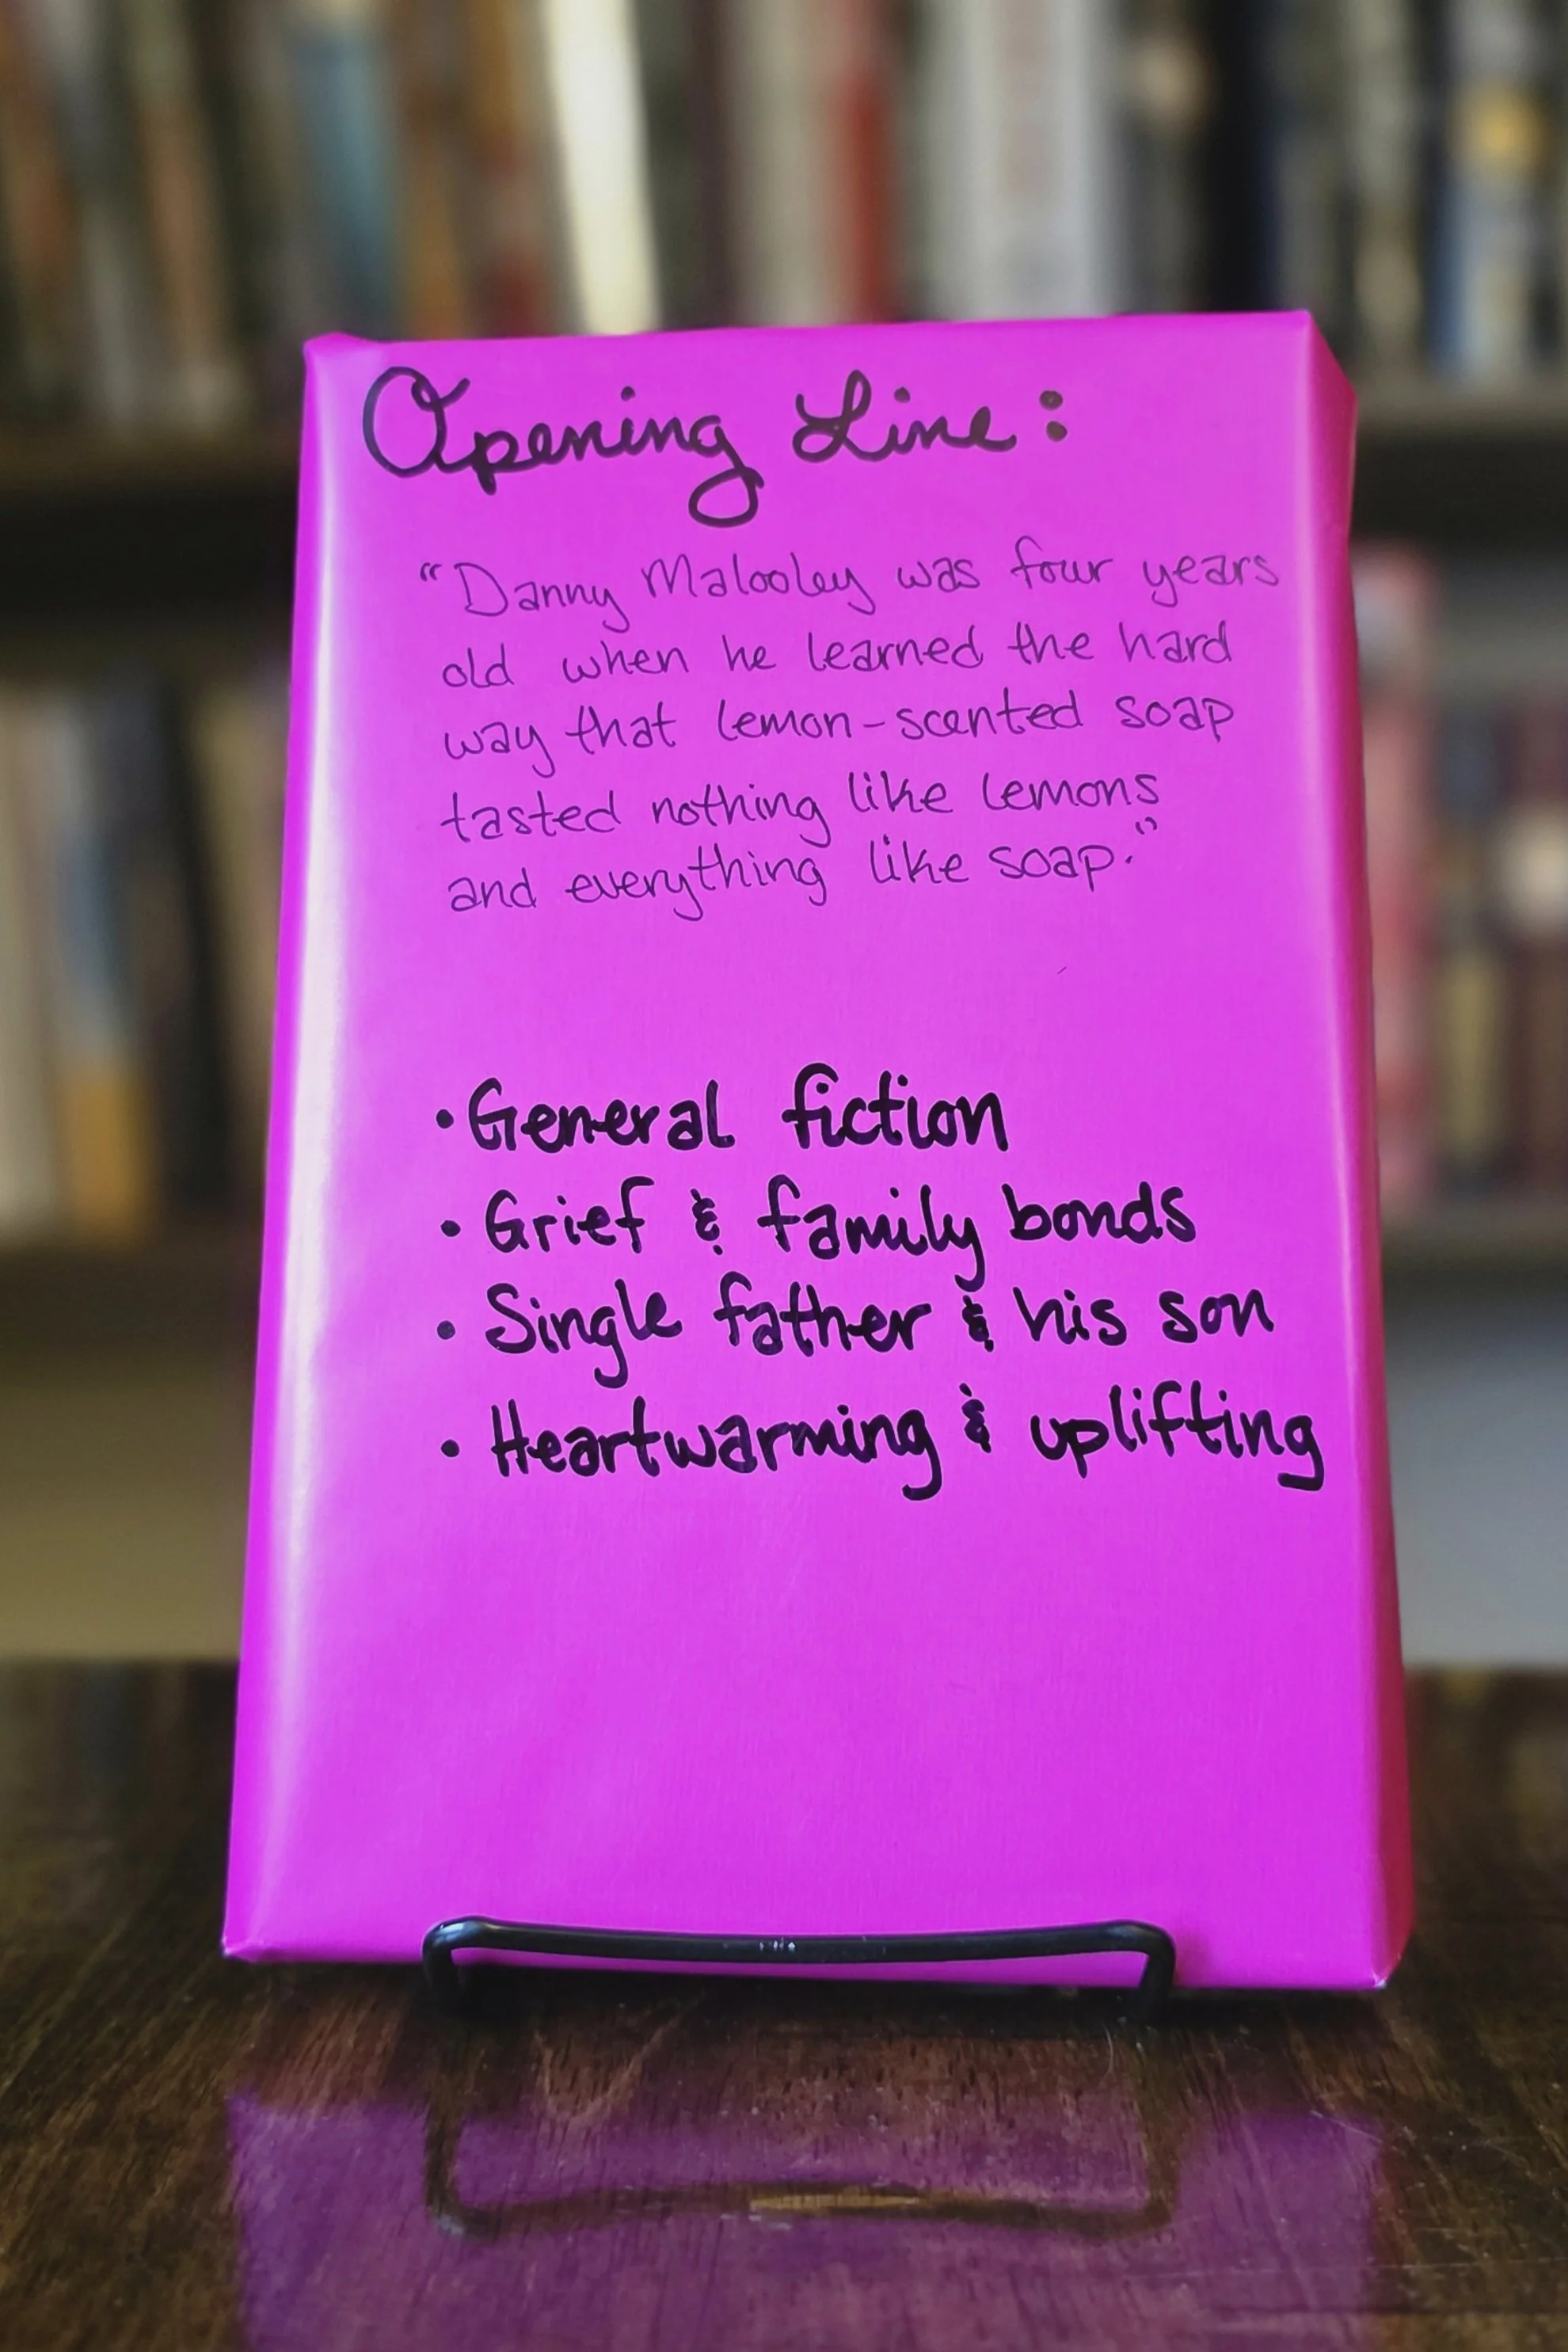 Opening Line:
"Danny Malooley was four years
old when he learned the hard
way that lemon-scented soap
tasted nothing like lemons
and everything like soap."
• General fiction
• Grief & family bonds
• Single father & his son
• Heartwarming & uplifting